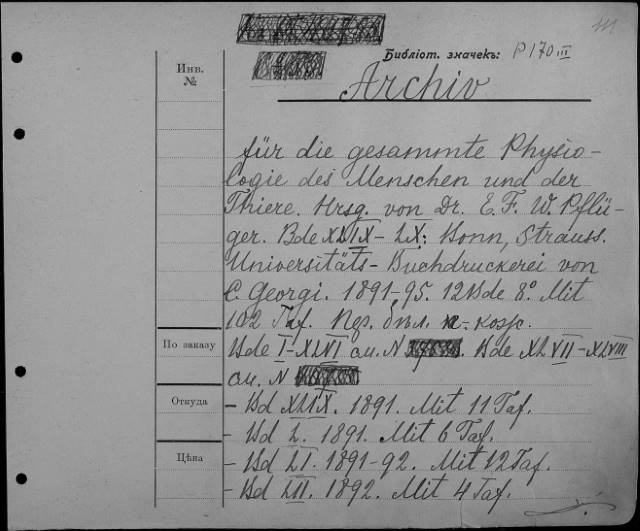 Библіот. значекъ: P 170 III
Инв. №
Archiv
für die gesammte Physio-
logie des Menschen und der
Thiere. Hrsg. von Dr. E. F. W. Pflü-
ger. Bde XLIX-LX: Bonn, Strauss.
Universitäts-Buchdruckerei von
C. Georgi. 1891-95. 12 Bde 8º. Mit
102 Taf. Пер. бѣл. к-кож.
По заказу
Bde I-XLVI см. N Bde XLVII-XLVIII
см. N
Откуда
- Bd XLIX. 1891. Mit 11 Taf.
- Bd L. 1891. Mit 6 Taf.
Цѣна
- Bd LI. 1891-92. Mit 12 Taf.
- Bd LII. 1892. Mit 4 Taf.